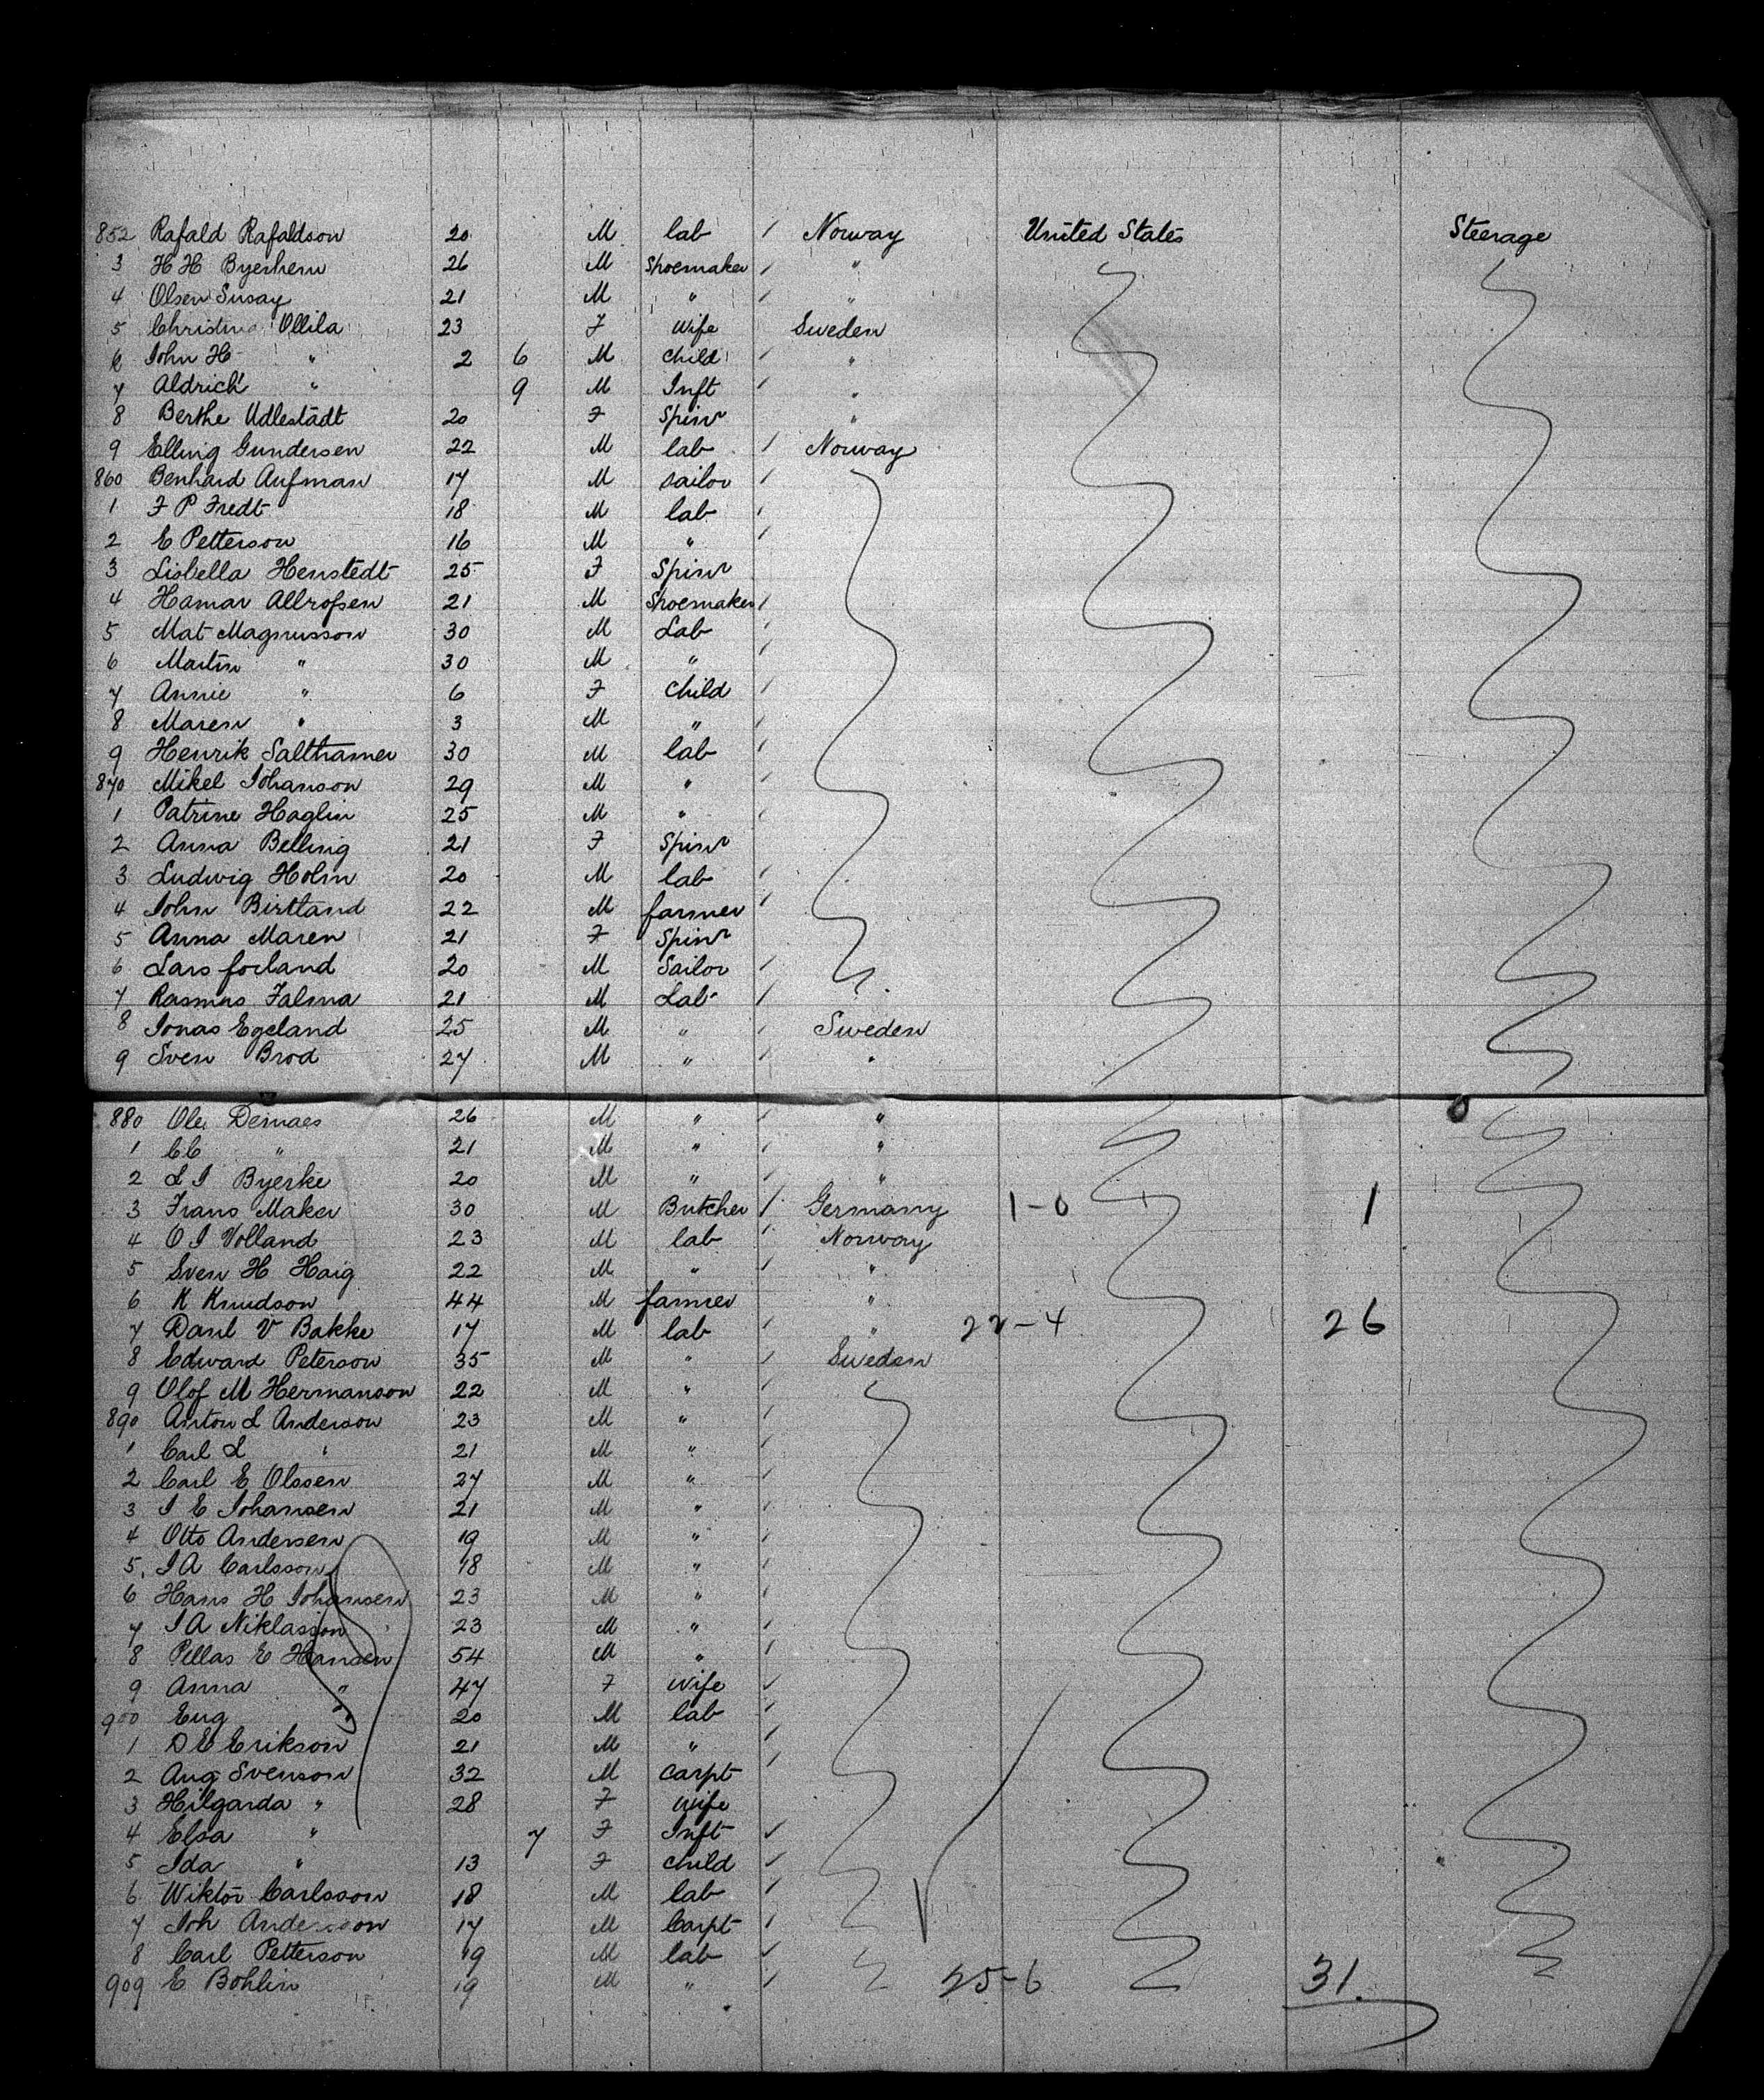 852 Rafald Rafaldson 20 M lab / Norway United States Steerage
3 H H Byerhem 26 M Shoemaker / "
4 Olsen Susay 21 M " / "
5 Christine Ollila 23 F Wife Sweden
6 John H " 2 6 M child / "
7 Aldrich " 9 M Inft / "
8 Berthe Udlestadt 20 F Spinr "
9 Elling Gundersen 22 M lab / Norway
860 Benhard Aufman 17 M sailor /
1 F P Fredt 18 M lab /
2 E Petterson 16 M " /
3 Lisbella Henstedt 25 F Spinr
4 Hamar Allrofsen 21 M Shoemaker /
5 Mat Magnusson 30 M Lab /
6 Martin " 30 M " /
7 Annie " 6 F child /
8 Maren " 3 M " /
9 Henrik Salthamer 30 M lab /
870 Mikel Johanson 29 M " /
1 Patrine Haglin 25 M " /
2 Anna Belling 21 F Spinr
3 Ludwig Holm 20 M lab /
4 John Birtland 22 M farmer /
5 Anna Maren 21 F Spinr
6 Lars forland 20 M Sailor /
7 Rasmus Falma 21 M Lab /
8 Jonas Egeland 25 M " / Sweden
9 Sven Brod 27 M " / "
880 Ole Demaes 26 M " / "
1 CC " 21 M " / "
2 L J Byerke 20 M " / "
3 Frans Maker 30 M Butcher / Germany 1-0 1
4 O J Volland 23 M lab / Norway
5 Sven H Haig 22 M " / "
6 K Knudson 44 M farmer "
7 Danl V Bakke 17 M lab / " 22-4 26
8 Edward Peterson 35 M " / Sweden
9 Olof M Hermanson 22 M " /
890 Anton L Anderson 23 M " /
1 Carl L " 21 M " /
2 Carl E Olssen 27 M " /
3 J E Johansen 21 M " /
4 Otto Andersen 19 M " /
5 J A Carlsson 18 M " /
6 Hans H Johansen 23 M " /
7 J A Niklasson 23 M " /
8 Pellas E Hansen 54 M " /
9 Anna " 47 F Wife ✓
900 Eug " 20 M lab /
1 D E Erikson 21 M " /
2 Aug Svenson 32 M Carpt /
3 Hilgarda " 28 F Wife
4 Elsa " 7 F Inft ✓
5 Ida " 13 F child ✓
6 Wiktor Carlsson 18 M lab /
7 Joh Andersson 17 M Carpt /
8 Carl Petterson 19 M lab ✓
909 E Bohlin 19 M " / 25-6 31.